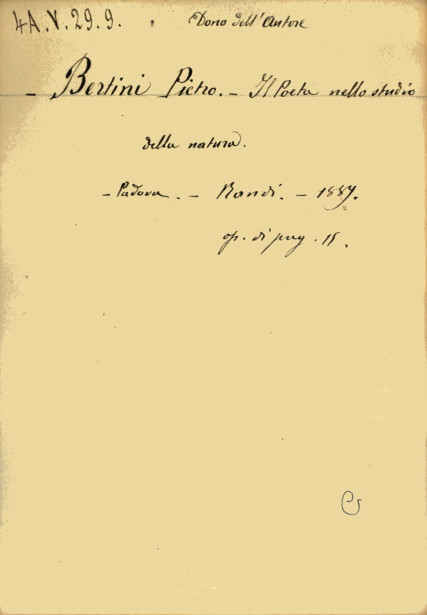 4A.V.29.9. Dono dell'Autore
- Bertini Pietro. - Il Poeta nello studio
della natura.
- Padova. - Randi. - 1887.
op. di pag. 15.